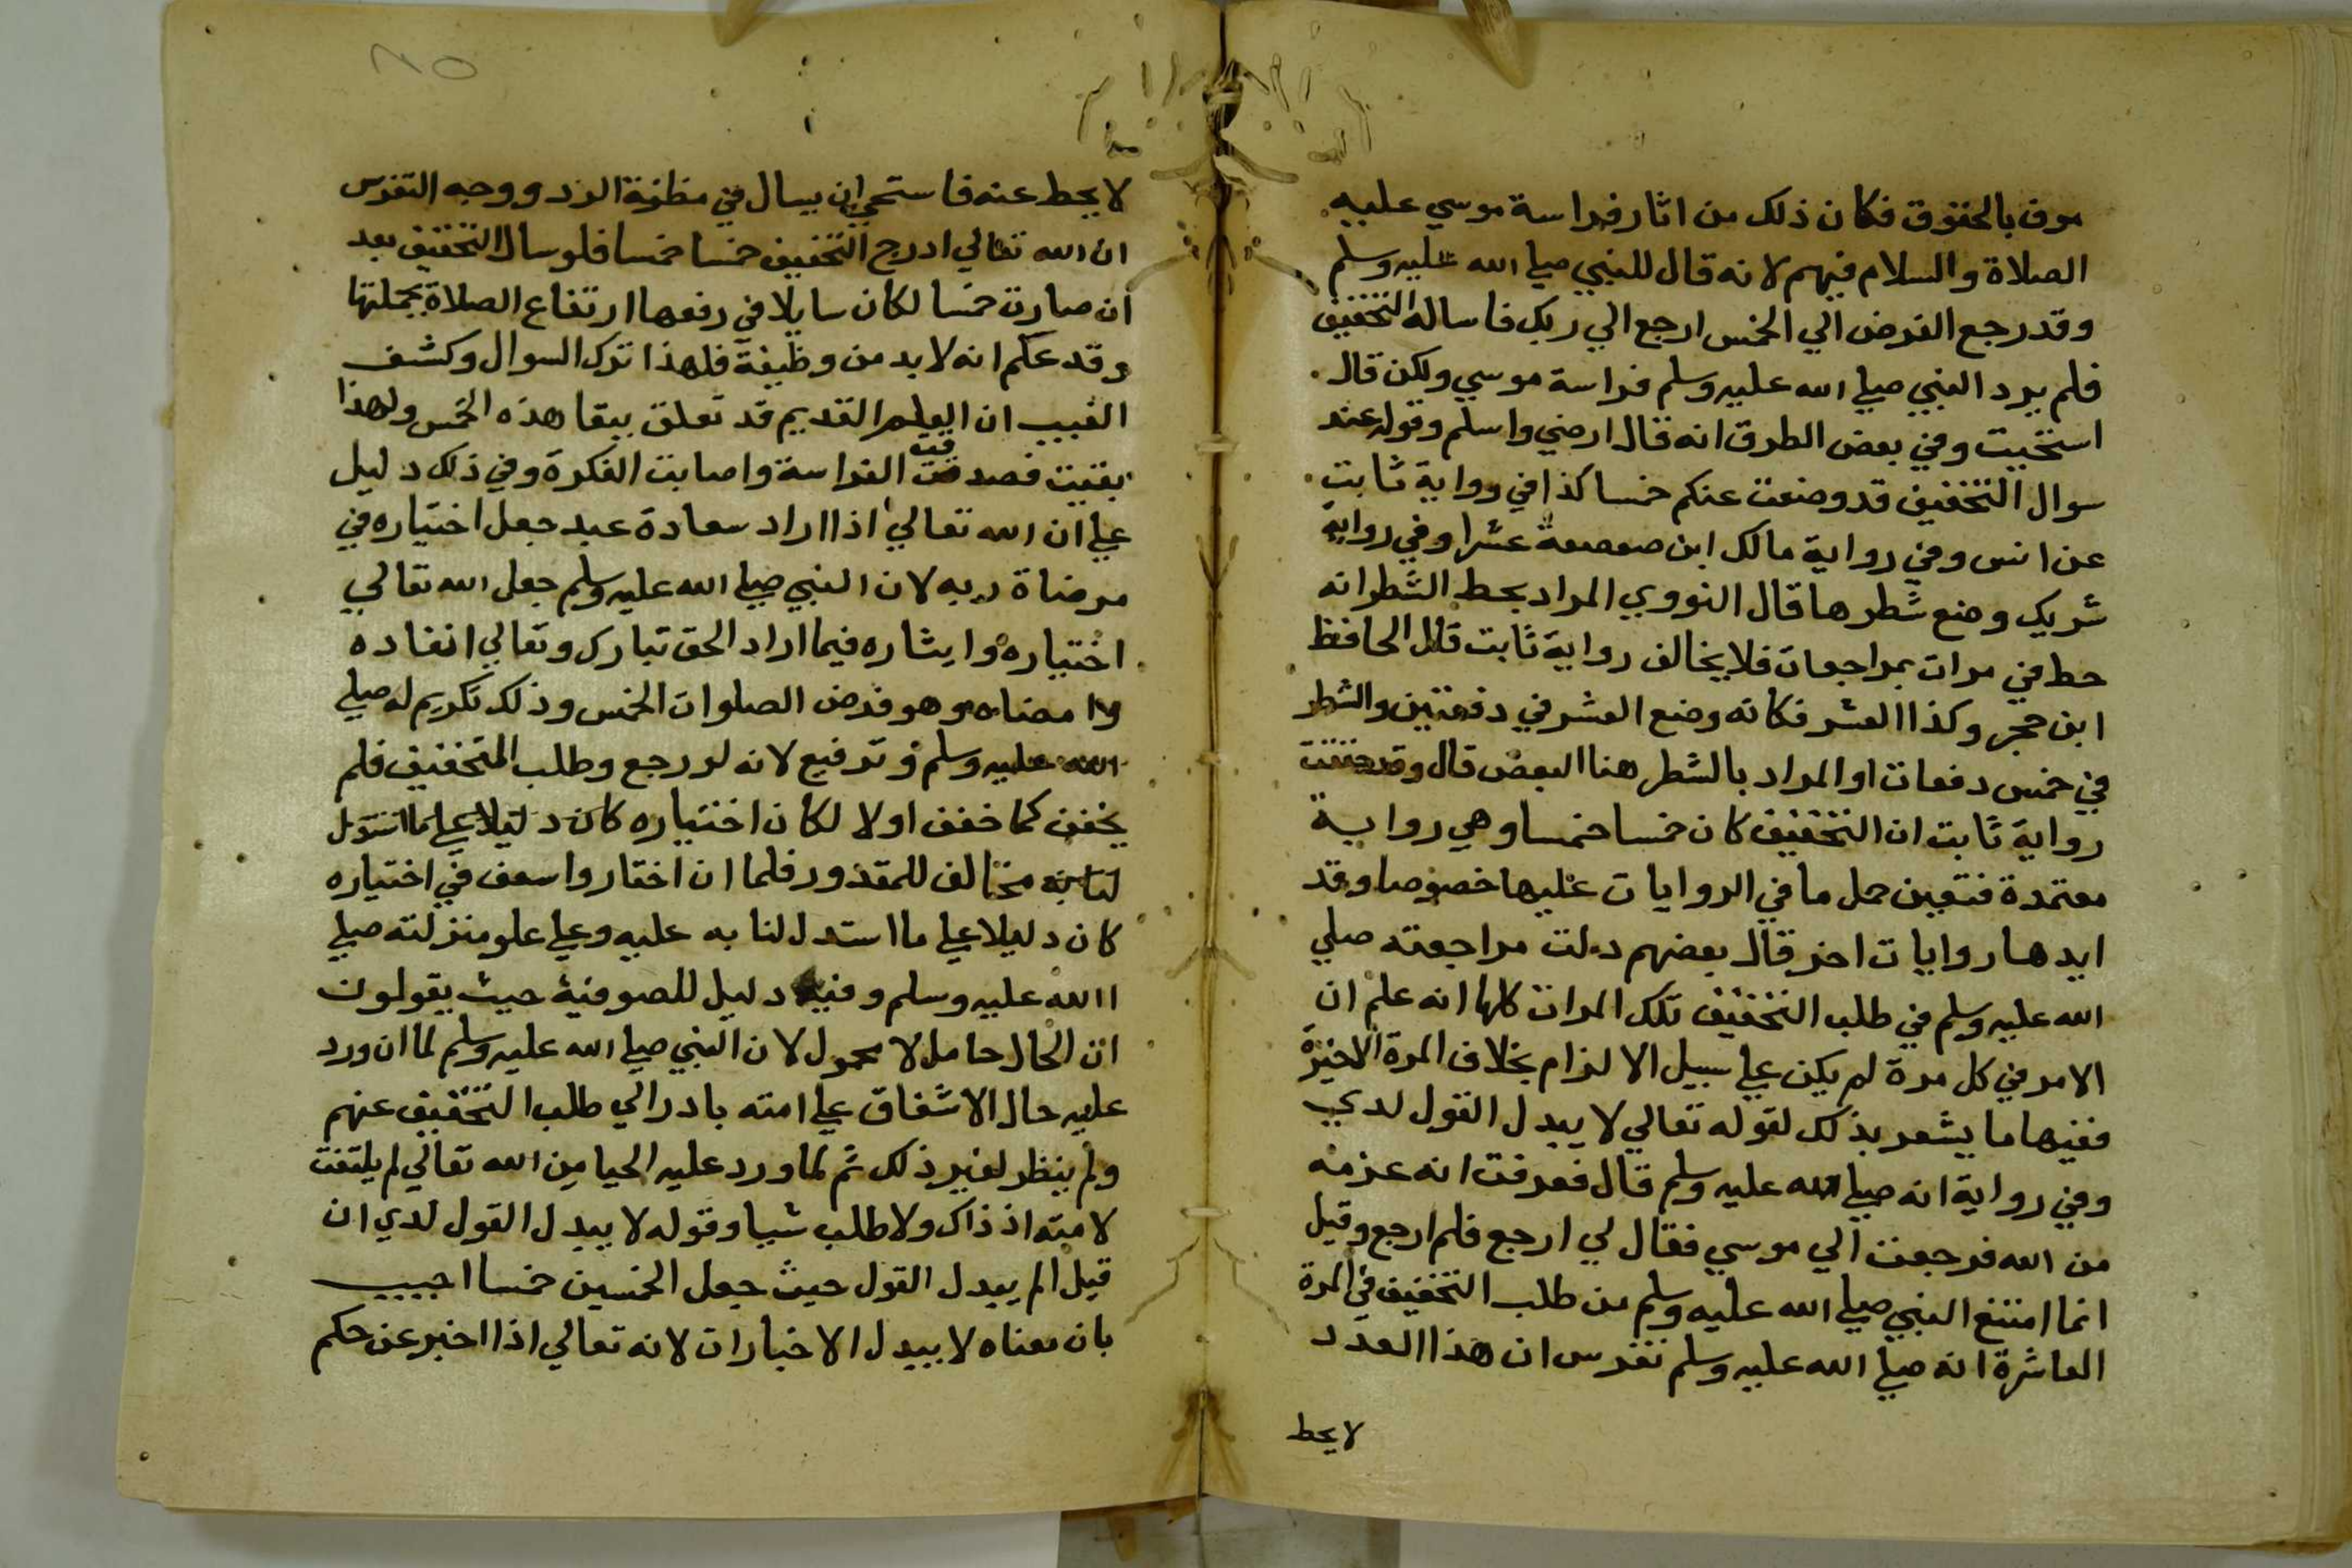 موف بالحقوق فكان ذلك من اثار فراسة موسي عليه
الصلاة والسلام فيهم لانه قال للنبي صلي الله عليه وسلم
وقد رجع الفرض الي الخمس ارجع الي ربك فاساله التخفيف
فلم يرد النبي صلي الله عليه وسلم فراسة موسي ولكن قال
استحييت وفي بعض الطرق انه قال ارضي واسلم وقوله عند
سوال التخفيف قد وضعت عنكم خمسا كذا في رواية ثابت
عن انس وفي رواية مالك ابن صعصعة عشرا وفي رواية
شريك وضع شطرها قال النووي المراد بحط الشطر انه
حط في مرات بمراجعات فلا يخالف رواية ثابت قال الحافظ
ابن حجر وكذا العشر فكانه وضع العشر في دفعتين والشطر
في خمس دفعات او المراد بالشطر هنا البعض قال وقد حققت
رواية ثابت ان التخفيف كان خمسا خمسا وهي رواية
معتمدة فتعين حمل ما في الروايات عليها خصوصا وقد
ايدها روايات اخر قال بعضهم دلت مراجعته صلي
الله عليه وسلم في طلب التخفيف تلك المرات كلها انه علم ان
الامر في كل مرة لم يكن علي سبيل الالزام بخلاف المرة الاخيرة
ففيها ما يشعر بذلك لقوله تعالي لا يبدل القول لدي
وفي رواية انه صلي الله عليه وسلم قال فعرفت انه عزمه
من الله فرجعت الي موسي فقال لي ارجع فلم ارجع وقيل
انما امتنع النبي صلي الله عليه وسلم من طلب التخفيف في المرة
العاشرة انه صلي الله عليه وسلم تفرس ان هذا العدد
لا يحط
٨٥
لا يحط عنه فاستحي ان يسال في مظنة الرد ووجه التفرس
ان الله تعالي ادرج التخفيف خمسا خمسا فلو سال التخفيف بعد
ان صارت خمسا لكان سايلا في رفعها ارتفاع الصلاة بجملتها
وقد علم انه لا بد من وظيفة فلهذا ترك السوال وكشف
الغيب ان العلم القديم قد تعلق ببقا هذه الخمس ولهذا
بقيت فصدقت الفراسة واصابت الفكرة وفي ذلك دليل
علي ان الله تعالي اذا اراد سعادة عبد جعل اختياره في
مرضاة ربه لان النبي صلي الله عليه وسلم جعل الله تعالي
اختياره وايثاره فيما اراد الحق تبارك وتعالي انفاده
وامضاه وهو فرض الصلوات الخمس وذلك تكريم له صلي
الله عليه وسلم وترفيع لانه لو رجع وطلب التخفيف فلم
يخفف كما خفف اولا لكان اختياره كان دليلا علي ما
مخالف للمقدور فلما ان اختار واسعف في اختياره
كان دليلا علي ما استدللنا به عليه وعلي علو منزلته صلي
الله عليه وسلم وفيه دليل للصوفية حيث يقولون
ان الحال حامل لا محمول لان النبي صلي الله عليه وسلم لما ان ورد
عليه حال الاشفاق علي امته بادر الي طلب التخفيف عنهم
ولم ينظر لغير ذلك ثم لما ورد عليه الحيا من الله تعالي لم يلتفت
لامته اذ ذاك ولا طلب شيا وقوله لا يبدل القول لدي ان
قيل الم يبدل القول حيث جعل الخمسين خمسا اجيب
بان معناه لا يبدل الاخبارات لانه تعالي اذا اخبر عن حكم